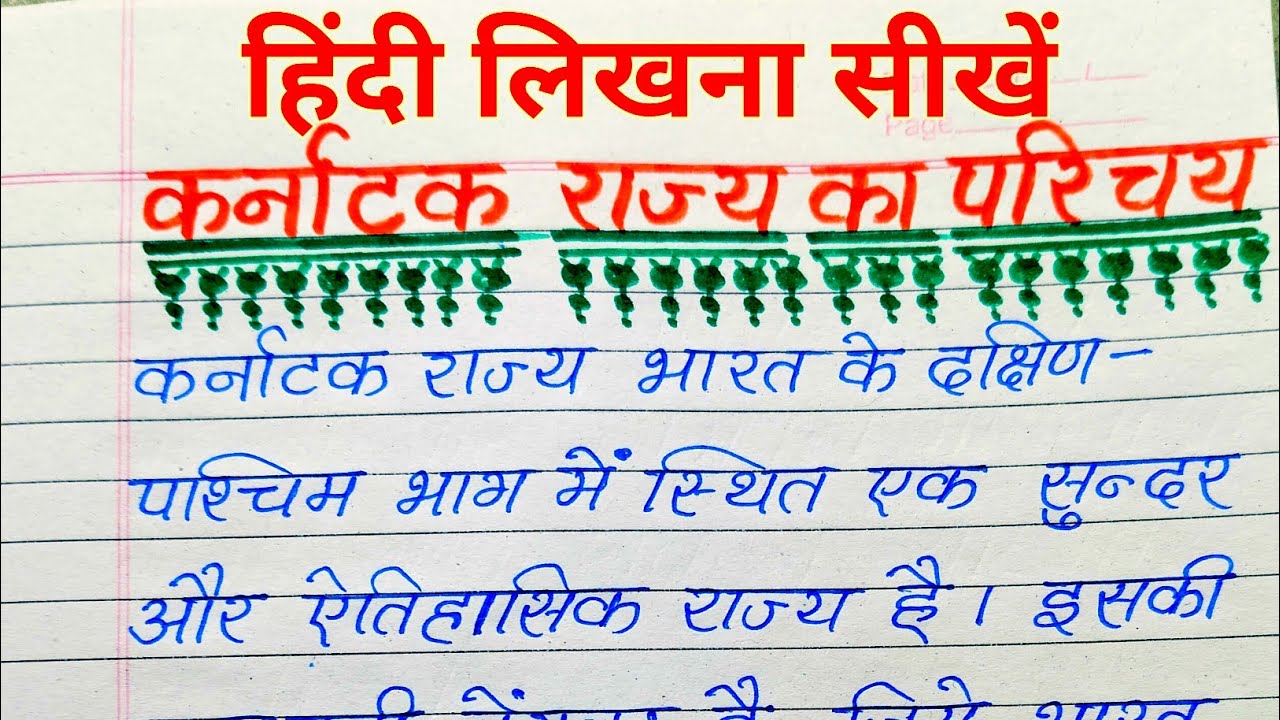 हिंदी लिखना सीखें
Page
कर्नाटक राज्य का परिचय
कर्नाटक राज्य भारत के दक्षिण-
पश्चिम भाग में स्थित एक सुन्दर
और ऐतिहासिक राज्य है। इसकी